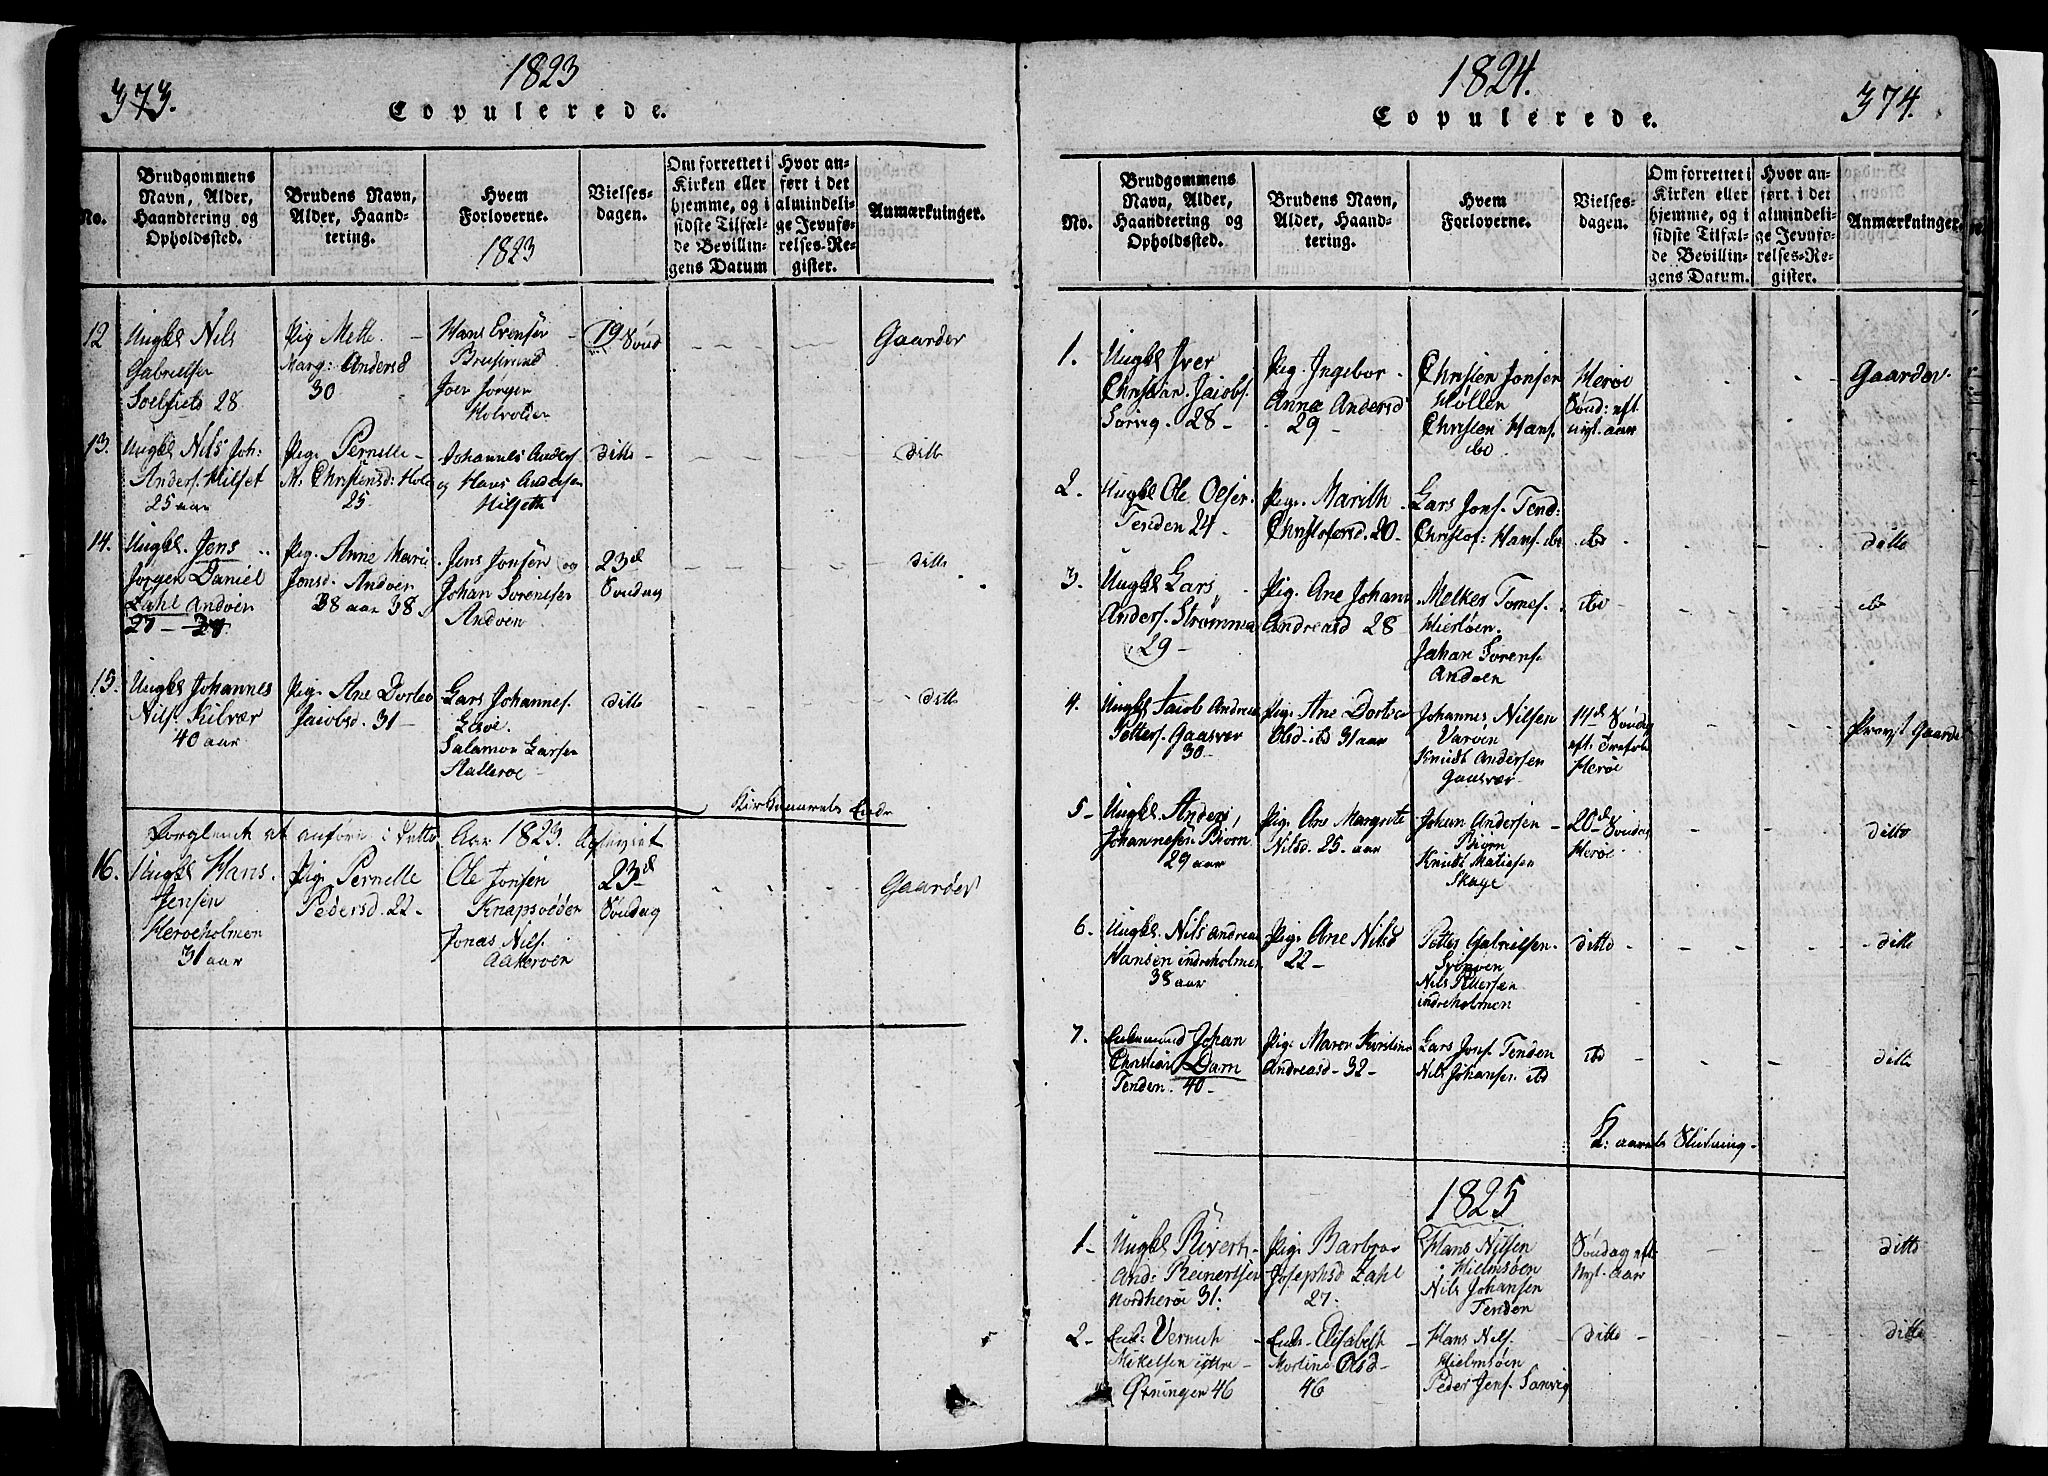 373.
1823
Copulerede.
No.
Brudgommens Navn, Alder, Haandtering og Opholdssted.
Brudens Navn, Alder, Haandtering.
Hvem Forloverne.
1823
Vielsesdagen.
Om forrettet i Kirken eller hjemme, og i sidste Tilfælde Bevillingens Datum
Hvor anført i det almindelige Jevnførelses-Register.
Anmærkninger.
12
Ungkl Nils
Gabrielsen
Soelfiels 28
Pig. Mette
Marg: Anders
30
Hans Evensen
Joen Jörgen
19 Sönd
Gaarder
13.
Ungkl Nils Joh:
Anders. Hilset
25 aar
Pig. Pernelle
M. Christensd: Hol
25
Johannes Anders
og Hans Andersen
Hilseth
ditto
ditto
14.
Ungkl. Jens
Jörgen Daniel
Zahl Andöen
27
Pig. Anne Mari
Jensd. Andöen
38 aar 38
Jens Jonsen og
Johan Sörensen
Andöen
23d
Söndag
ditto
15.
Ungkl Johannes
Nils. Kilvær
40 aar
Pig. Ane Dortea
Jacobsd. 31
Lars Johannes.
Salamon Larsen
ditto
ditto
Kirkeaarets Ende
Forglemt at anföre i dette Aar 1823.
16.
Ungkl Hans
Jensen
Heröeholmen
31 aar
Pig. Pernelle
Pedersd. 22
Ole Jonsen
Jonas Nils.
Aakervöen
23d
Söndag
Gaarder
1824.
374.
Copulerede.
No.
Brudgommens Navn, Alder, Haandtering og Opholdssted.
Brudens Navn, Alder, Haandtering.
Hvem Forloverne.
Vielsesdagen.
Om forrettet i Kirken eller hjemme, og i sidste Tilfælde Bevillingens Datum.
Hvor anført i det almindelige Jevnførelses-Register.
Anmærkninger.
1.
Ungkl Iver
Christian Jacobs.
Sörvig. 28
Pig. Ingebor
Anne Andersd
29
Christen Jonsen
Möllen
Christen Hans.
ibd
Heröe
Sönd: eft.
nyt. aar
Gaarder
2.
Ungkl Ole Olsen
Tenden 24
Pig. Marith
Christofersd. 20
Lars Jons. Tend:
Christof: Hans. ibd
ibd
ditto
3.
Ungkl Lars
Anders. Strömme
29
Pig. Ane Johan
Andreasd 28
Melker Tomes.
Johan Sörens.
Andöen
ibd
ibd
4.
Ungkl Jacob Andrea
Petters. Gaasvær
30
Pig. Ane Dortea
Olsd ibd 31 aar
Johannes Nilsen
Knudt Andersen
Gaasvær
14d Söndag
eft. Trefold.
Heröe
Provst Gaarder
5
Ungkl Anders
Johannesen Biörn
29 aar
Pig. Ane Margrete
Nilsd. 25 aar
Johan Andersen
Biörn
Knudt Matiesen
Skage
20d Söndag
Heröe
ditto
6
Ungkl. Nils Andrea
Hansen indreholmen
38 aar
Pig. Ane Nilsd
22
Petter Gabrielsen
Nils Pettersen
indreholmen
ditto
ditto
7.
Enkemand Johan
Christian Dam
Tenden. 40
Pig. Maren Kirstine
Andreasd 32
Lars Jons. Tenden
Nils Johansen ibd
ibd
ditto
K: aarets Slutning
1825
1
Ungkl Sivert
And: Reinertsen
Nordheröe 31.
Pig. Barbroe
Josephsd Zahl
27.
Hans Nilsen
Hielmsöen
Nils Johansen
Tenden
Söndag eft.
Nyt. aar
ditto
2
Enk: Vernut
Mikelsen ijttre
Øtningen 46
Enk. Elisabeth
Martine Olsd
46
Hans Nils.
Hielmsöen
Peder Jens. Sanvig
ditto
ditto